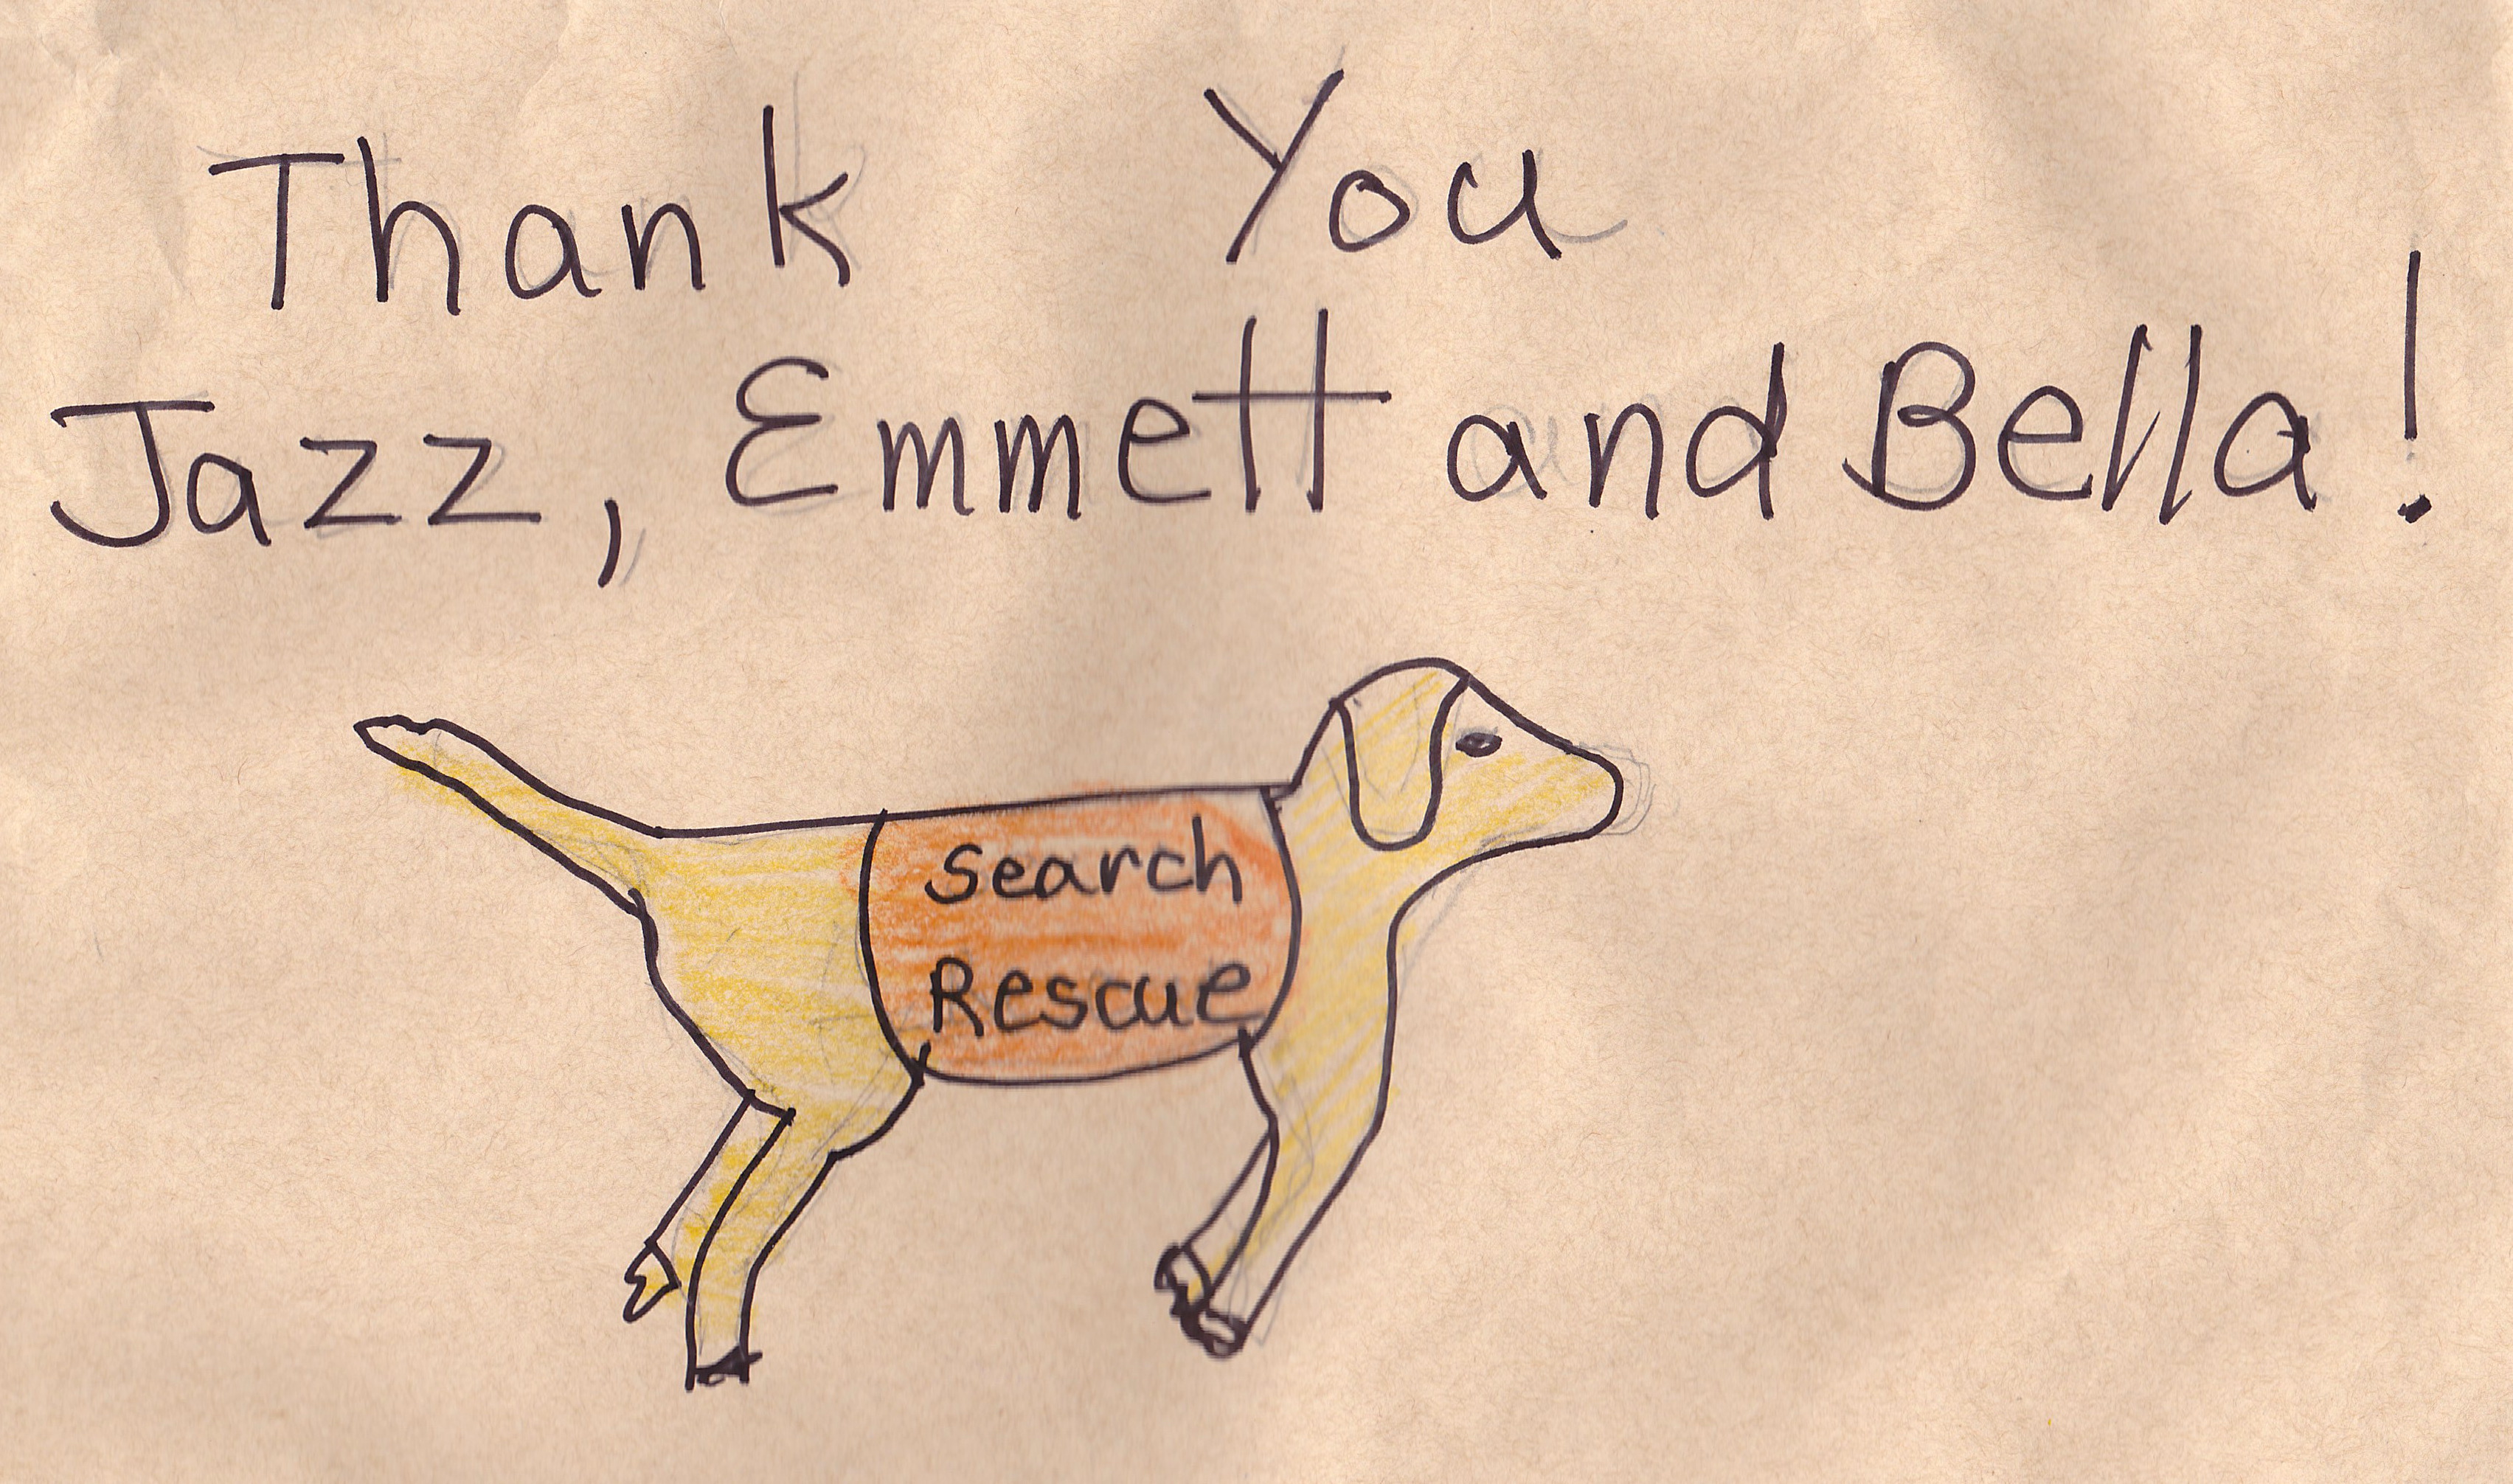 Thank You
Jazz, Emmett and Bella!
Search
Rescue